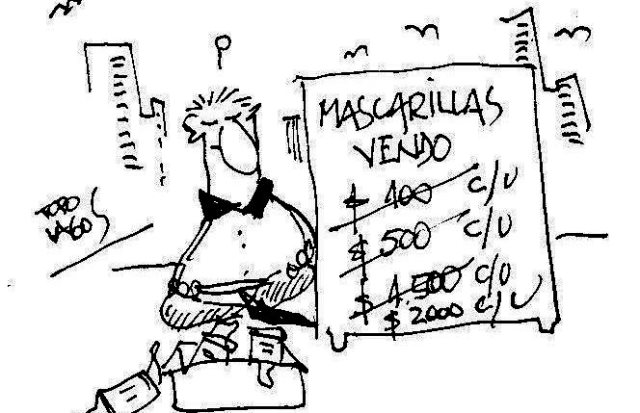 MASCARILLAS
VENDO
$ 100 C/U
$ 500 C/U
$ 1.500 C/U
$ 2000 C/U
TOPO
LAGOS